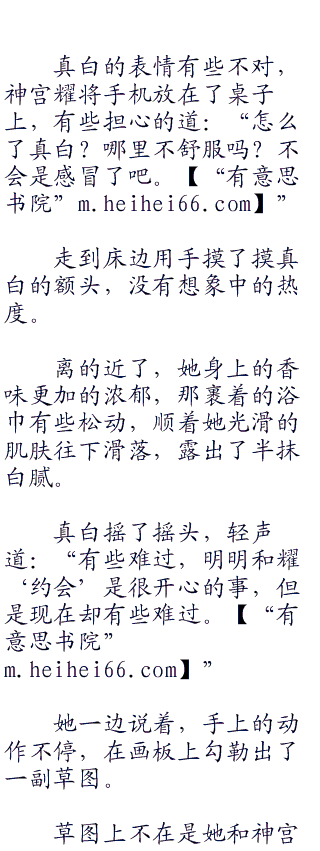 真白的表情有些不对，
神宫耀将手机放在了桌子
上，有些担心的道：“怎么
了真白？哪里不舒服吗？不
会是感冒了吧。【“有意思
书院”m.heihei66.com】”
走到床边用手摸了摸真
白的额头，没有想象中的热
度。
离的近了，她身上的香
味更加的浓郁，那裹着的浴
巾有些松动，顺着她光滑的
肌肤往下滑落，露出了半抹
白腻。
真白摇了摇头，轻声
道：“有些难过，明明和耀
‘约会’是很开心的事，但
是现在却有些难过。【“有
意思书院”
m.heihei66.com】”
她一边说着，手上的动
作不停，在画板上勾勒出了
一副草图。
草图上不在是她和神宫